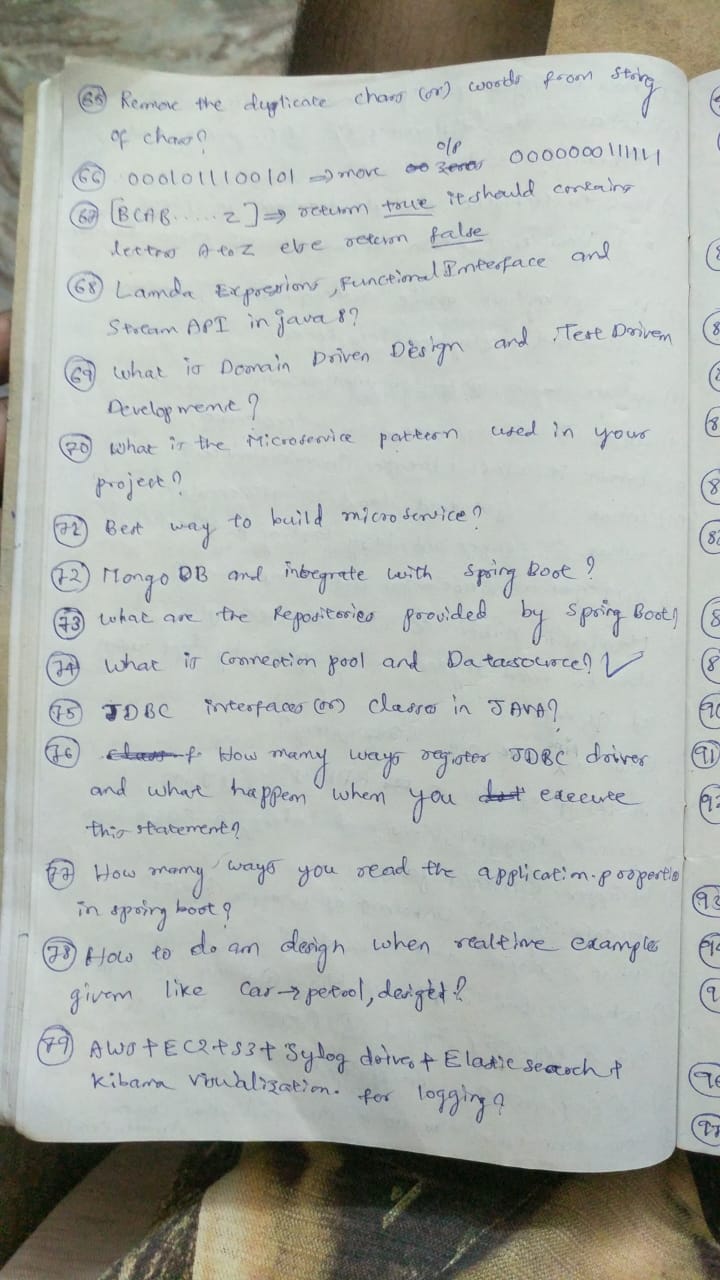 65 Remove the duplicate chars (or) words from string
of chars?
o/p
66 0001011100101 ⇒ move zeros 0000000111111
67 [BCAB......Z] ⇒ return true it should contains
letters A to Z else return false
68 Lamda Expressions, Functional Interface and
Stream API in java 8?
69 What is Domain Driven Design and Test Driven
Development?
70 What is the Microservice pattern used in your
project?
71 Best way to build microservice?
72 Mongo DB and integrate with Spring Boot?
73 What are the Repositories provided by Spring Boot?
74 What is Connection pool and Datasource? ✓
75 JDBC interfaces (or) Classes in JAVA?
76 How many ways register JDBC driver
and what happen when you execute
this statement?
77 How many ways you read the application.propertie
in spring boot?
78 How to do an design when realtime examples
given like Car → petrol,
79 AWS + EC2 + S3 + Sylog driver + Elastic search +
Kibana visualization. for logging?
8
8
8
8
8
8
8
8
90
91
92
93
94
9
96
97